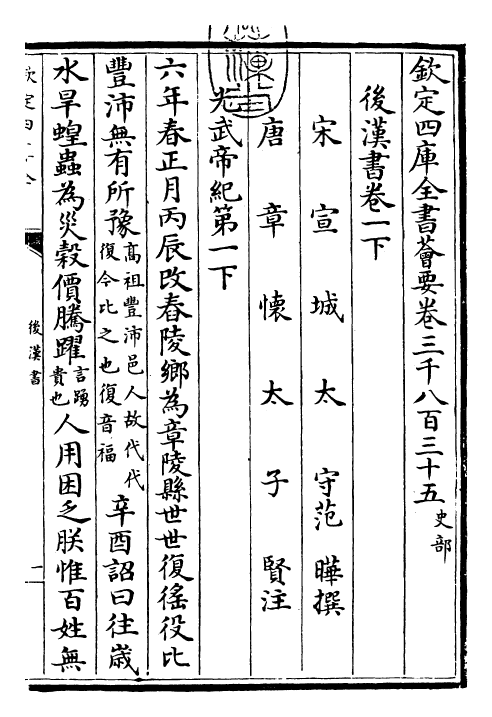 欽定四庫全書薈要卷三千八百三十五史部
後漢書卷一下
宋宣城太守范曄撰
唐章懷太子賢注
光武帝紀第一下
六年春正月丙辰改舂陵鄉為章陵縣世世復徭役比
豐沛無有所豫高祖豐沛邑人故代代復今比之也復音福辛酉詔曰往嵗
水旱蝗蟲為災榖價騰躍言踴貴也人用困乏朕惟百姓無
後漢書
一